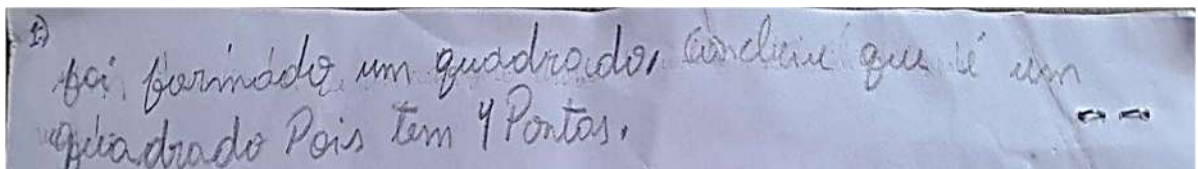 1.)
foi formado um quadrado, concluiu que é um
quadrado Pois tem 4 Pontas.